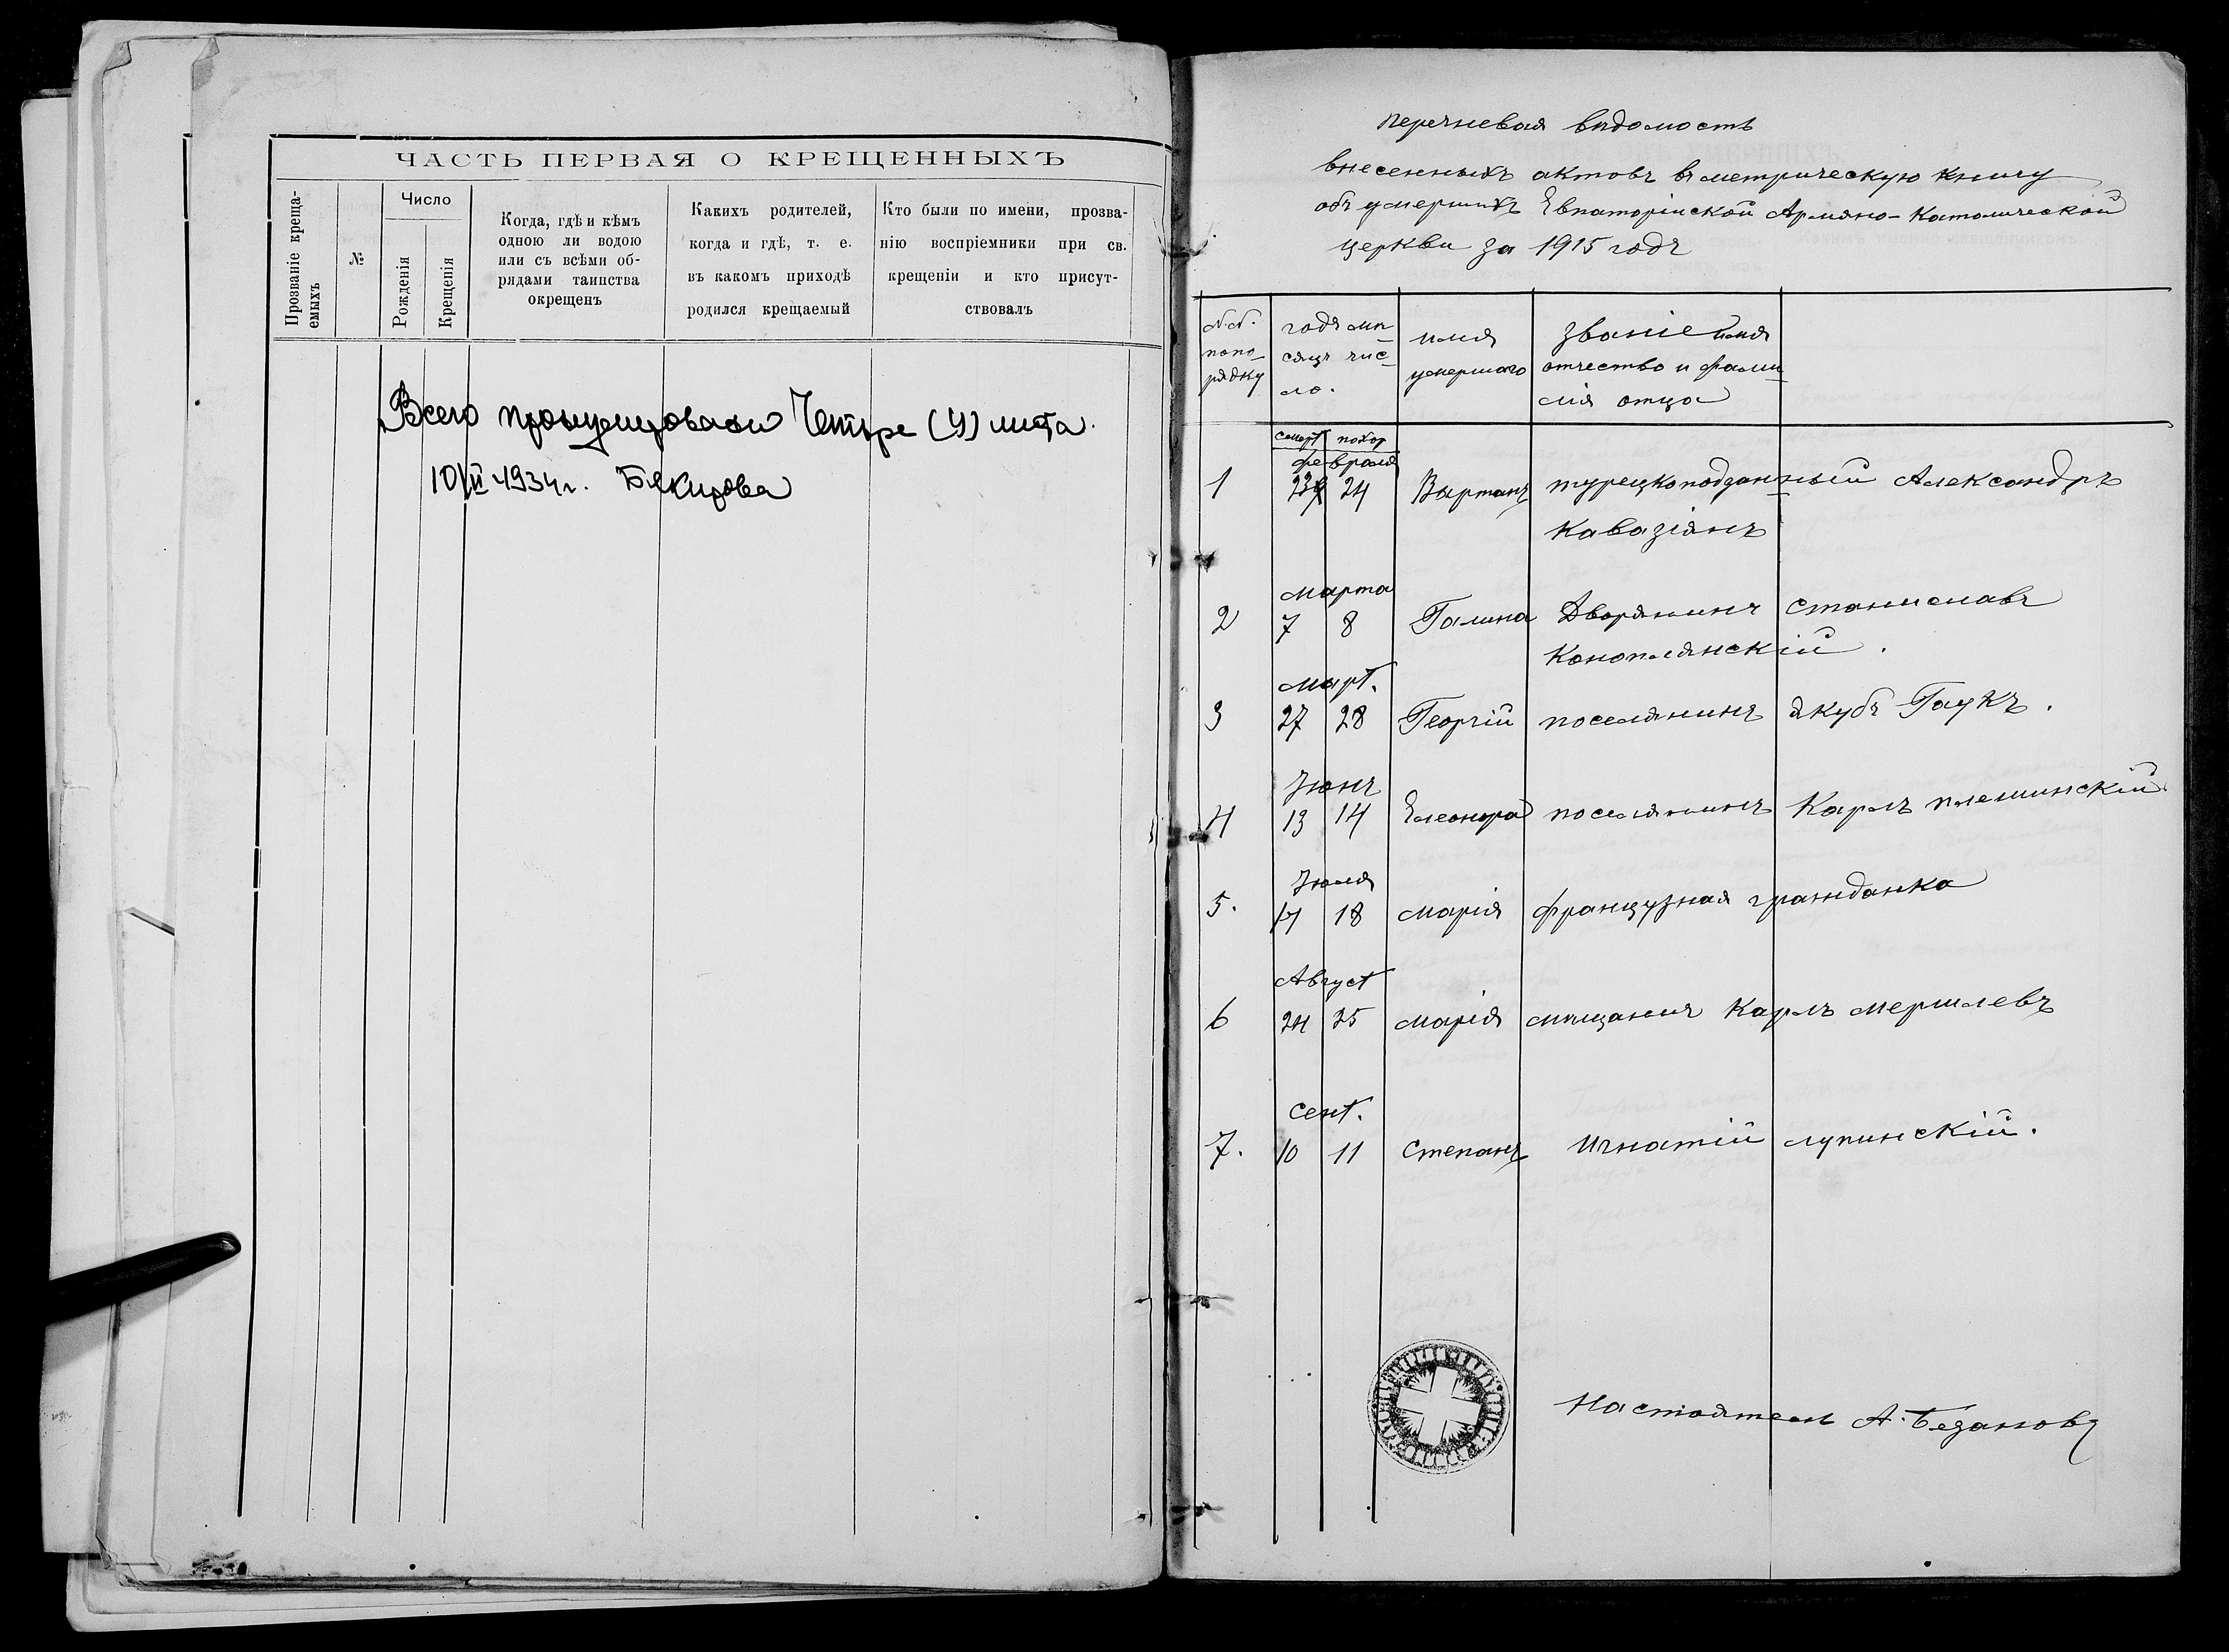 ЧАСТЬ ПЕРВАЯ О КРЕЩЕННЫХЪ
Прозваніе креща-
емыхъ
№
Число
Рожденія
Крещенія
Когда, гдѣ и кѣмъ
одною ли водою
или съ всѣми об-
рядами таинства
окрещенъ
Какихъ родителей,
когда и гдѣ, т. е.
въ какомъ приходѣ
родился крещаемый
Кто были по имени, прозва-
нію воспріемники при св.
крещеніи и кто присут-
ствовалъ
Всего пронумеровано Четыре (4) листа.
10/II 1934 г. Бякирова
Перечневая вѣдомость
внесенныхъ актовъ въ метрическую книгу
объ умершихъ Евпаторійской Армяно-Католической
церкви за 1915 годъ
№№.
по по-
рядку
годъ мѣ-
сяцъ чис-
ло.
имя
умершаго
званіе имя
отчество и фами-
лія отца
смерт похор
февраля
1 23 24 Выртанъ турецкоподданный Александръ
Кавазіянъ
марта
2 7 8 Галина Дворянинъ Станиславъ
Коноплянскій.
март.
3 27 28 Георгій поселянинъ Якубъ Гаукъ.
Іюнь
4 13 14 Елеонора поселянинъ Карлъ Племинскій
Іюля
5. 17 18 Марія французкая гражданка
Август
6 24 25 Марія мѣщанинъ Карлъ Мершлевъ
Сент.
7. 10 11 Степанъ Игнатій Лупинскій.
Настоятель А. Безановъ